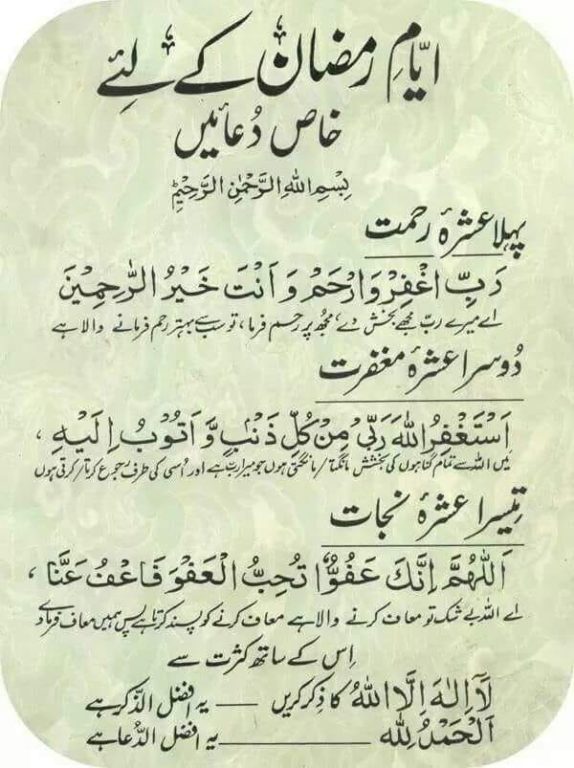 ایّامِ رمضان کے لئے
خاص دُعائیں
بِسْمِ اللهِ الرَّحْمٰنِ الرَّحِيْمِ
پہلا عشرۂ رحمت
رَبِّ اغْفِرْ وَارْحَمْ وَاَنْتَ خَيْرُ الرّٰحِمِيْنَ
اے میرے ربّ مجھے بخش دے، مجھ پر رحم فرما، تو سب سے بہتر رحم فرمانے والا ہے
دُوسرا عشرۂ مغفرت
اَسْتَغْفِرُ اللهَ رَبِّیْ مِنْ كُلِّ ذَنْۢبٍ وَّاَتُوْبُ اِلَيْهِ ،
میں اللہ سے تمام گناہوں کی بخشش مانگتا/مانگتی ہوں جو میرا ربّ ہے اور اُسی کی طرف رجوع کرتا/کرتی ہوں
تیسرا عشرۂ نجات
اَللّٰهُمَّ اِنَّكَ عَفُوٌّ تُحِبُّ الْعَفْوَ فَاعْفُ عَنَّا ،
اے اللہ بے شک تو معاف کرنے والا ہے معاف کرنے کو پسند کرتا ہے پس ہمیں معاف فرما دے
اِس کے ساتھ کثرت سے
لَآ اِلٰهَ اِلَّا اللهُ کا ذِکر کریں — یہ افضل الذّکر ہے
اَلْحَمْدُ لِلّٰه — یہ افضل الدُّعا ہے